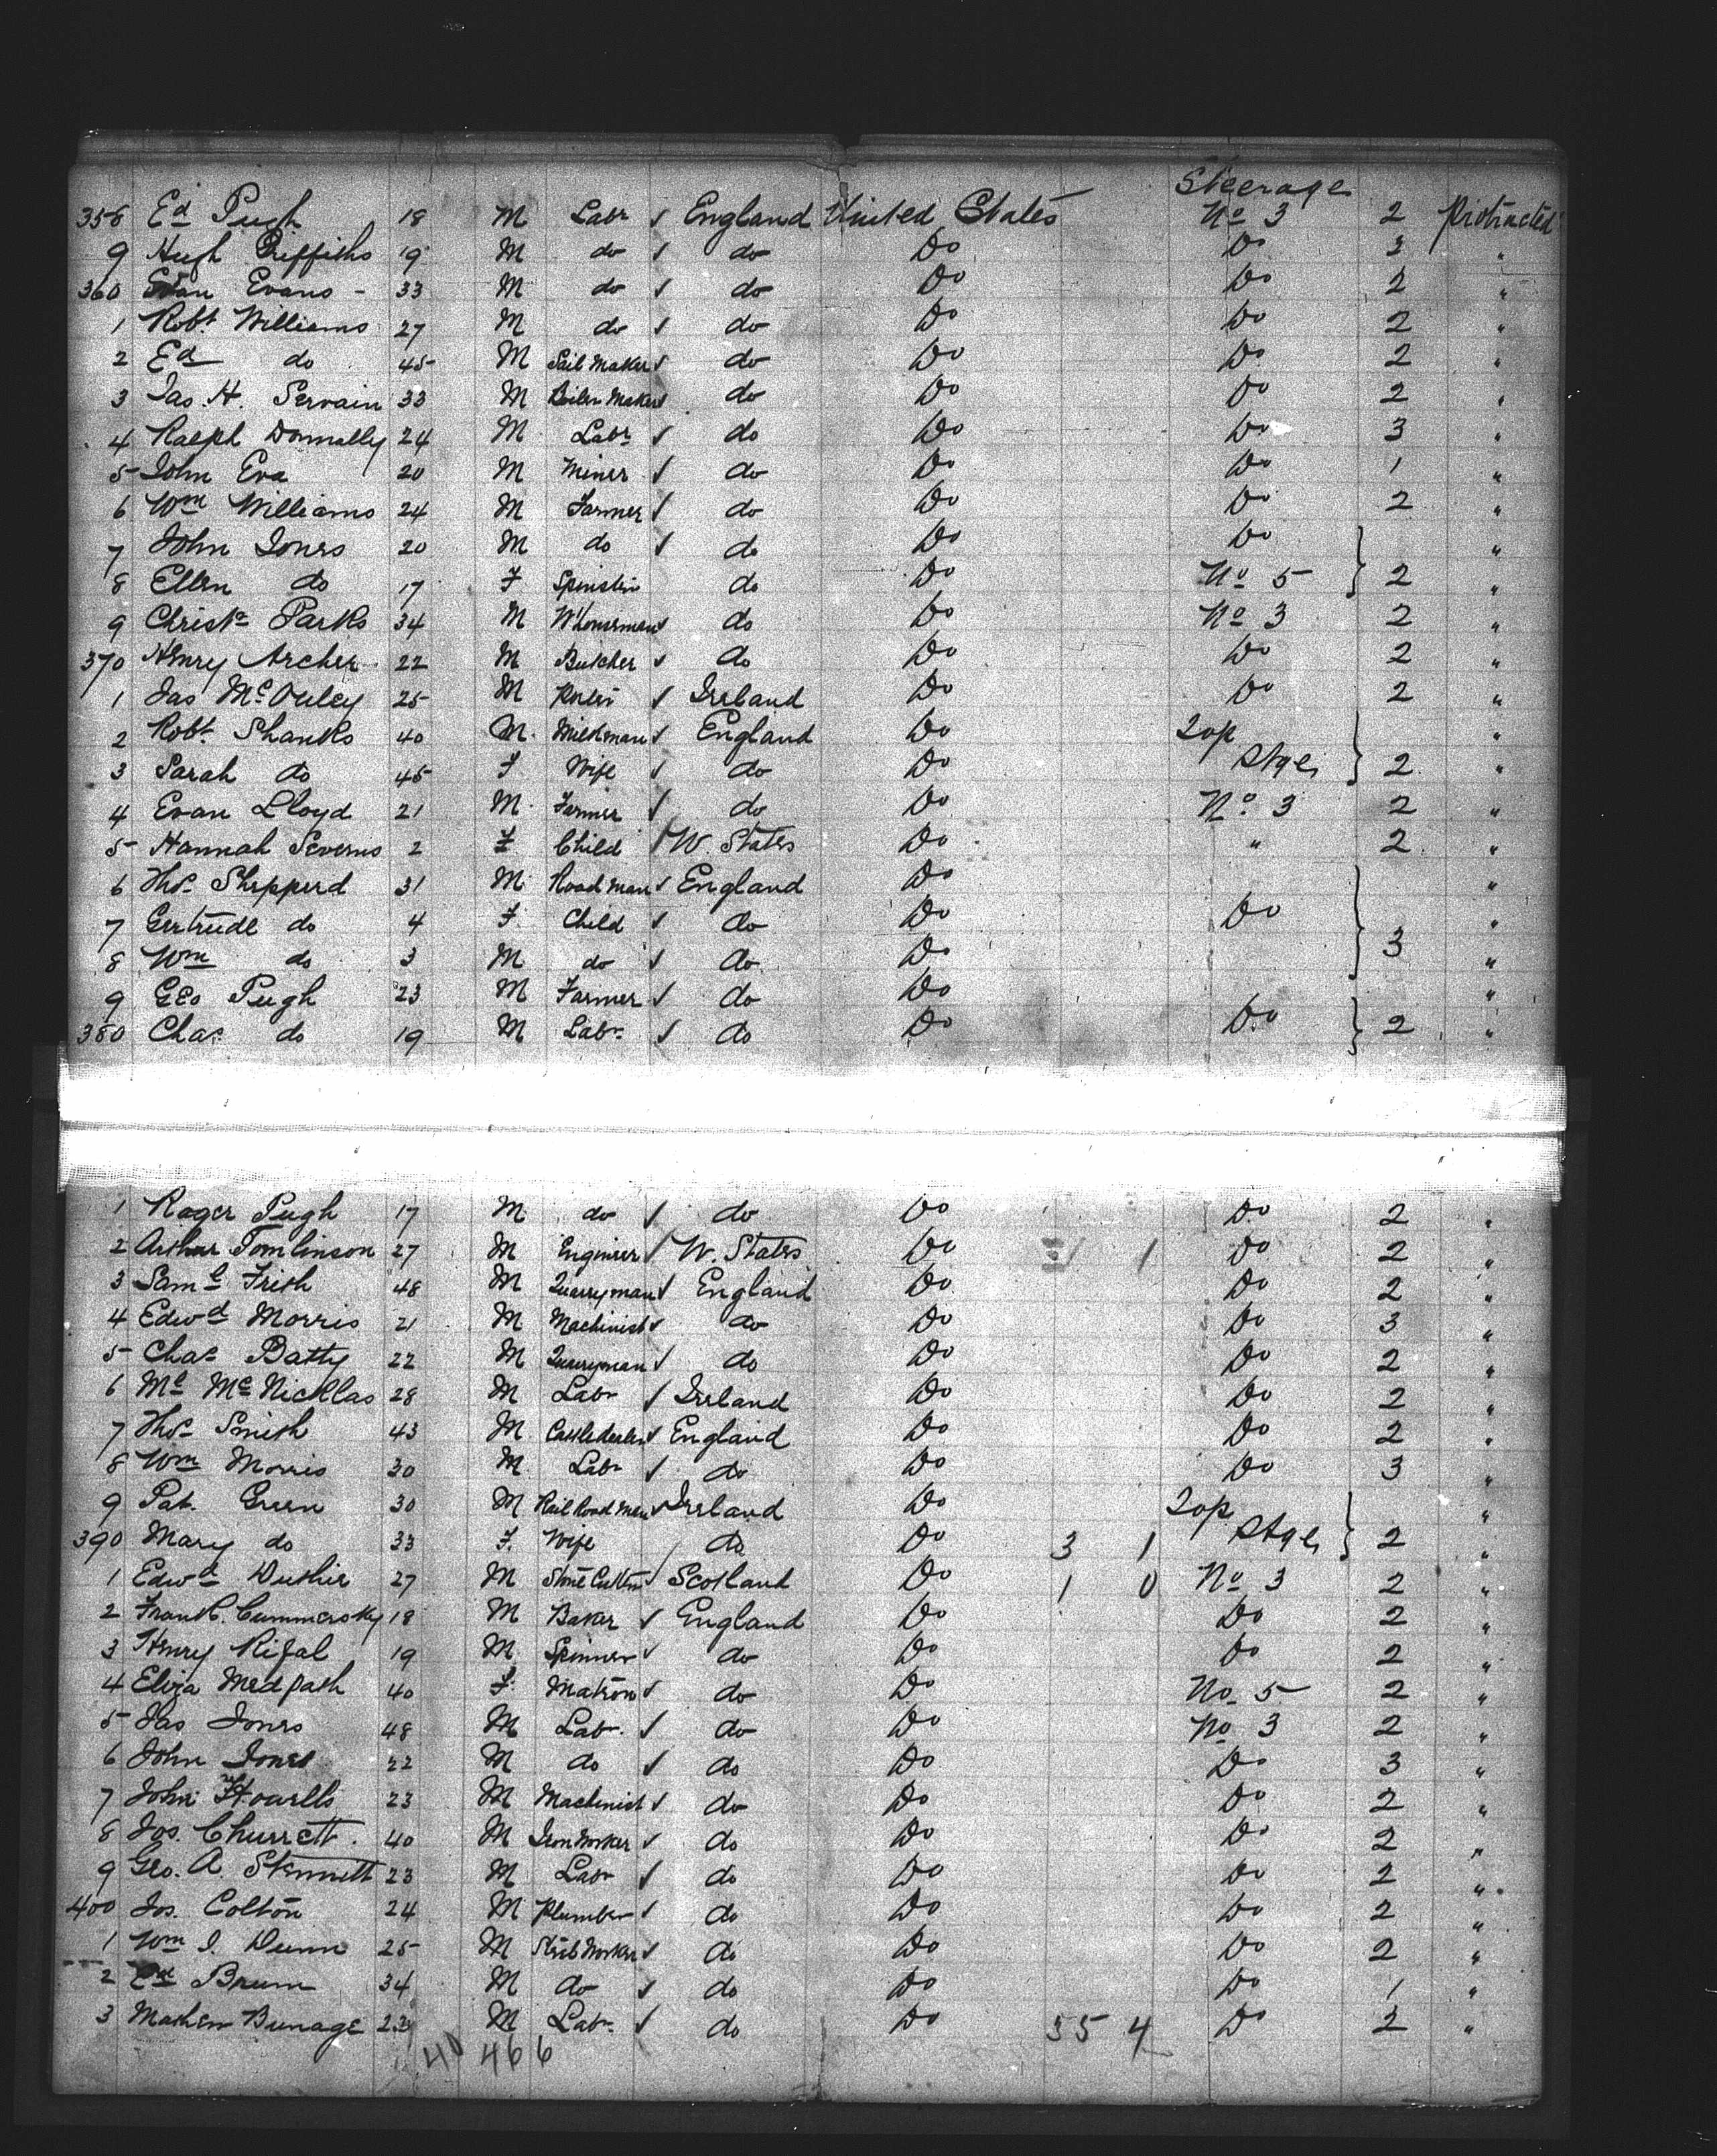 Steerage
358 Ed Pugh 18 M Labr ✓ England United States No 3 2 Protracted
9 Hugh Griffiths 19 M do ✓ do Do Do 2 "
360 Evan Evans - 33 M do ✓ do Do Do 2 "
1 Robt. Williams 27 M do ✓ do Do Do 2 "
2 Ed do 45 M Sail Maker ✓ do Do Do 2 "
3 Jas. H. Servain 33 M Boiler Maker ✓ do Do Do 2 "
4 Ralph Donnally 24 M Labr ✓ do Do Do 3 "
5 John Eva 20 M Miner ✓ do Do Do 1 "
6 Wm Williams 24 M Farmer ✓ do Do Do 2 "
7 John Jones 20 M do ✓ do Do Do "
8 Ellen do 17 F Spinster do Do No 5 2 "
9 Christr Parks 34 M ✓ do Do No 3 2 "
370 Henry Archer 22 M Butcher ✓ do Do Do 2 "
1 Jas 25 M ✓ Ireland Do Do 2 "
2 Robt. Shanks 40 M Milkman ✓ England Do Top "
3 Sarah do 45 F Wife ✓ do Do Stge 2 "
4 Evan Lloyd 21 M Farmer ✓ do Do No. 3 2 "
5 Hannah Severns 2 F Child ✓ U. States Do " 2 "
6 Thos Shepperd 31 M Road Man ✓ England Do "
7 Gertrude do 4 F Child ✓ do Do Do "
8 Wm do 3 M do ✓ do Do 3 "
9 Geo Pugh 23 M Farmer ✓ do Do "
380 Chas do 19 M Labr ✓ do Do Do 2 "
1 Roger Pugh 17 M do ✓ do Do Do 2 "
2 Arthur Tomlinson 27 M Engineer ✓ U. States Do 1 Do 2 "
3 Saml Frith 48 M Quarryman ✓ England Do Do 2 "
4 Edwd Morris 21 M Machinist ✓ do Do Do 3 "
5 Chas Batty 22 M Quarryman ✓ do Do Do 2 "
6 Ml McNicklas 28 M Labr ✓ Ireland Do Do 2 "
7 Thos Smith 43 M Cattle dealer ✓ England Do Do 2 "
8 Wm Morris 30 M Labr ✓ do Do Do 3 "
9 Pat. Green 30 M Rail Road Man ✓ Ireland Do Top "
390 Mary do 33 F. Wife / do Do 3 1 Stge 2 "
1 Edwd Duthie 27 M Stone Cutter ✓ Scotland Do 1 0 No 3 2 "
2 Frank. Cummersky 18 M Baker ✓ England Do Do 2 "
3 Henry 19 M Spinner ✓ do Do Do 2 "
4 Eliza 40 F Matron ✓ do Do No 5 2 "
5 Jas Jones 48 M Labr. ✓ do Do No 3 2 "
6 John Jones 22 M do ✓ do Do Do 3 "
7 John Howells 23 M Machinist ✓ do Do Do 2 "
8 Jos. Churrett. 40 M Iron Worker ✓ do Do Do 2 "
9 Geo. A. Stennett 23 M Labr ✓ do Do Do 2 "
400 Jos. Colton 24 M Plumber ✓ do Do Do 2 "
1 Wm J. Dunn 25 M Steel Worker ✓ do Do Do 2 "
2 Ed Brum 34 M do ✓ do Do Do 1 "
3 Mathew Bunage 23 M Labr. ✓ do Do 55 4 Do 2 "
40 466